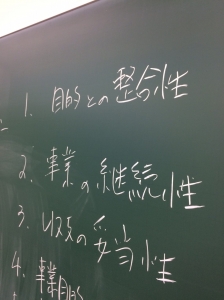 1. 目的との整合性
2. 事業の継続性
3. 収支の妥当性
4. 事業目的